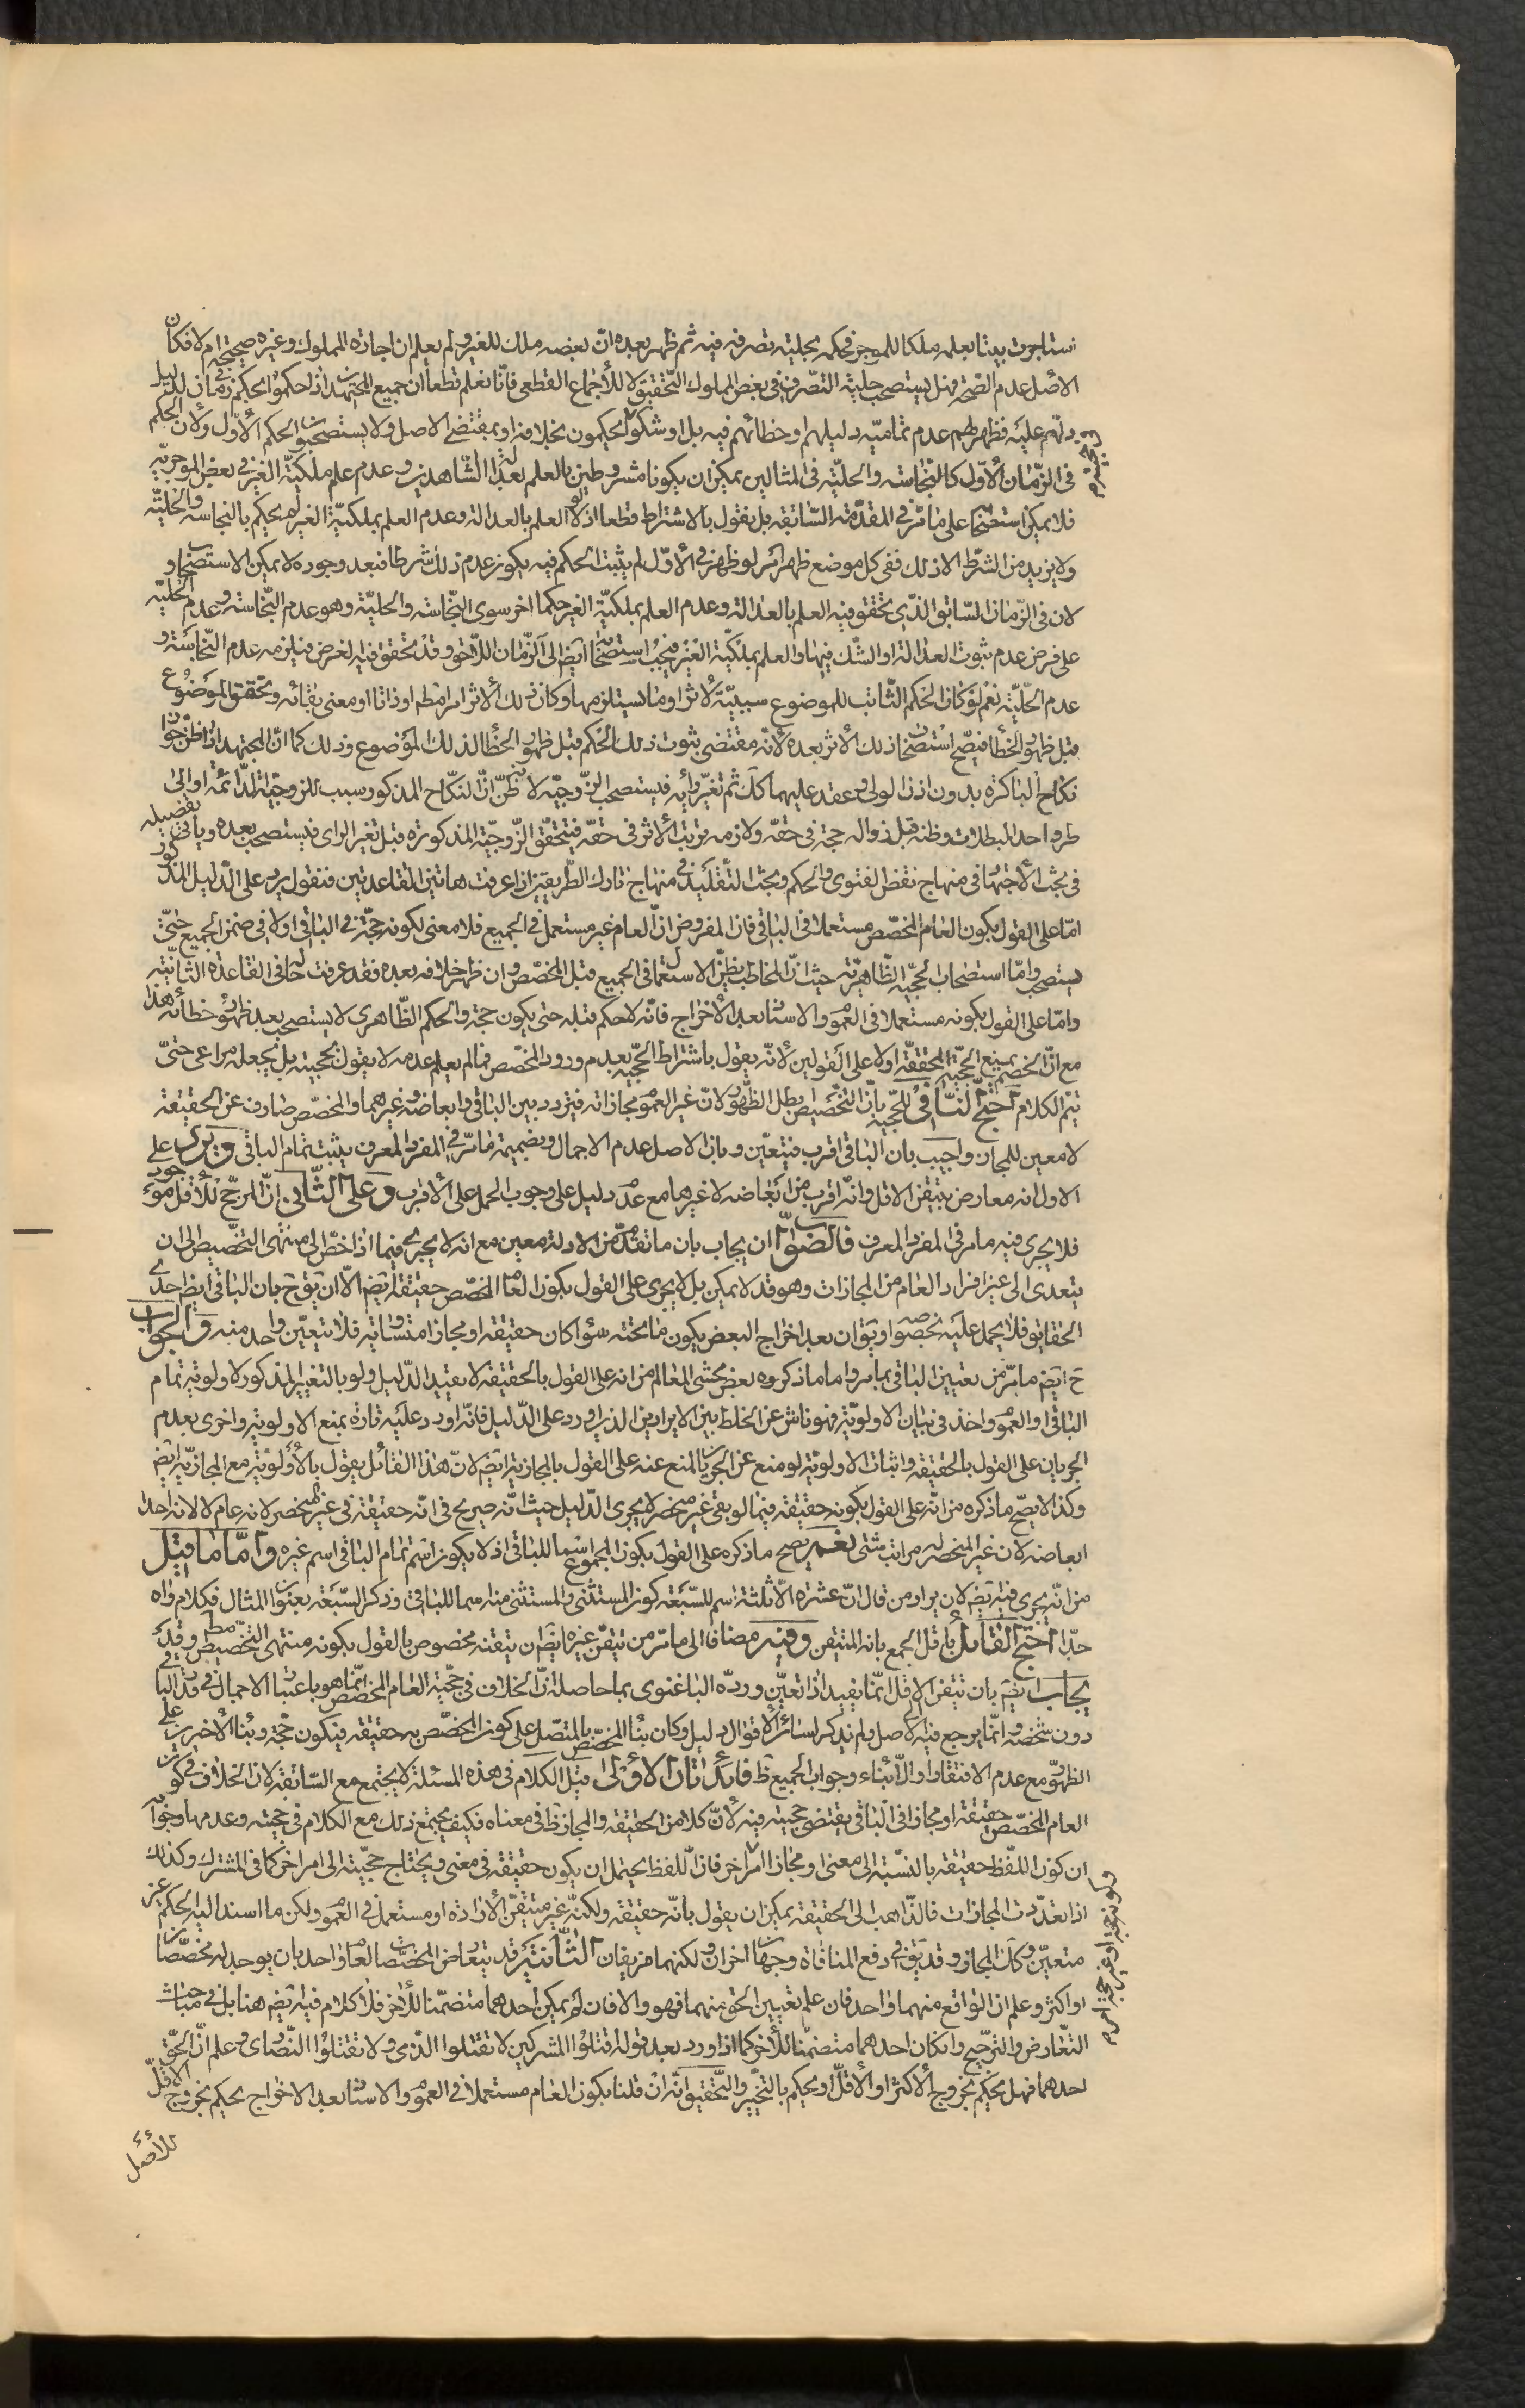 استاجرت بيتا بعلمه ملكا للموجر فحكم بحلية تصرفه فيه ثم ظهر بعده ان بعضه ملك للغير ولم يعلم ان اجازة المملوك وغيره صحيحة ام لا فكان
الاصل عدم الصحة فهل يستصحب حلية التصرف في بعض المملوك التحقيق لا للأجماع القطعى فانا نعلم قطعا ان جميع المجتهدين اذا حكموا بحكم في زمان لدليل
دلهم عليه فظهر لهم عدم تمامية دليلهم او خطائهم فيه بل او شكوا يحكمون بخلافه او بمقتضى الاصل ولا يستصحبون الحكم الأول ولأن الحكم
في الزمان الأول كالنجاسة والحلية في المثالين يمكن ان يكونا مشروطين بالعلم بعدالة الشاهدين وعدم علم ملكية الغير في بعض الموجر به
فلا يمكن استصحابها على ما مر في المقدمة السابقة بل نقول بالاشتراط قطعا اذ لولا العلم بالعدالة وعدم العلم بملكية الغير لم يحكم بالنجاسة والحلية
ولا يزيد من الشرط الا ذلك ففى كل موضع ظهر امر لو ظهر في الأول لم يثبت الحكم فيه يكون عدم ذلك شرطا فبعد وجوده لا يمكن الاستصحاب و
لان في الزمان السابق الذى تحقق فيه العلم بالعدالة وعدم العلم بملكية الغير حكما اخر سوى النجاسة والحلية وهو عدم النجاسة وعدم الحلية
على فرض عدم ثبوت العدالة او الشك فيها والعلم بملكية الغير فيجب استصحابها ايضا الى الزمان اللاحق وقد تحقق فيه الغرض فيلزمه عدم النجاسة و
عدم الحلية نعم لو كان الحكم الثابت للموضوع سببية لأثر او ما يستلزمها وكان ذلك الأثر امرا مط او ذاتا او معنى بقائه وتحقق الموضوع
قبل ظهور الخطأ فيصح استصحاب ذلك الأثر بعده لأنه مقتضى ثبوت ذلك الحكم قبل ظهور الخطأ لذلك الموضوع وذلك كما ان المجتهد اذا ظن جواز
نكاح الباكرة بدون اذن الولى وعقد عليهما كك ثم تغير رأيه فيستصحب الزوجية لانه ظن ان النكاح المذكور سبب للزوجية الدائمة او الى
طرو احد المبطلات وظنه قبل زواله حجة في حقه ولازمه ترتب الأثر في حقه فيتحقق الزوجية المذكورة قبل تغير الراى فيستصحب بعده ويأتى تفصيله
في بحث الأجتهاد في منهاج نقض الفتوى والحكم وبحث التقليد في منهاج تاوك الطريقين اذا عرفت هاتين القاعدتين فنقول يرد على الدليل المذكور
اما على القول بكون العام المخصص مستعملا في الباقى فان المفروض ان العام غير مستعمل في الجميع فلا معنى لكونه حجة في الباقى اولا في ضمن الجميع حتى
يستصحب واما استصحاب الحجية الظاهرية حيث ان المخاطب يظن الاستعمال في الجميع قبل المخصص وان ظهر خلافه بعده فقد عرفت حاله في القاعدة الثانية
واما على القول بكونه مستعملا في العموم والاسناد بعد الأخراج فانه لا حكم قبله حتى يكون حجة والحكم الظاهرى لا يستصحب بعد ظهور خطائه هذا
مع ان الخصم يمنع الحجية المحققة اولا على القولين لأنه يقول باشتراط الحجية بعدم ورود المخصص فما لم يعلم عدمه لا يقول بحجيته بل يجعله مراعى حتى
يتم الكلام احتج النافى للحجية بان التخصيص يبطل الظهور لان غير العموم مجازاته فيتردد بين الباقى وابعاضه وغيرهما والمخصص صارف عن الحقيقة
لا معين للمجاز واجيب بان الباقى اقرب فيتعين وبان الاصل عدم الاجمال وبضميمة ما مر في المفرد المعرف يثبت تمام الباقى ويرد على
الاول انه معارض بتيقن الاقل وانه اقرب من ابعاضه لا غيرها مع عدم دليل على وجوب الحمل على الأقرب وعلى الثانى ان المرجح للأقل موجود
فلا يجرى فيه ما مر في المفرد المعرف فالصواب ان يجاب بان ما تقدم من الادلة معين مع انه لا يجرى فيما اذا خص الى منتهى التخصيص الى ان
يتعدى الى غير افراد العام من المجازات وهو قد لا يمكن بل لا يجرى على القول بكون العام المخصص حقيقة ايضا الا ان يق ح بان الباقى ايضا احدى
الحقايق فلا يحمل عليه بخصوصه او يق ان بعد اخراج البعض يكون ما تحته سواء كان حقيقة او مجازا متساوية فلا يتعين واحد منه والجواب
ح ايضا ما مر من تعيين الباقى بما مر واما ما ذكروه بعض محشى المعالم من انه على القول بالحقيقة لا يفيد الدليل ولو بالتغيير المذكور لاولوية تمام
الباقى او العموم واخذ في بيان الاولوية فهو ناش عن الخلط بين الايرادين الذين اورد على الدليل فانه اورد عليه تارة بمنع الاولوية واخرى بعدم
الجريان على القول بالحقيقة واثبات الاولوية لو منع عن الجريان المنع عنه على القول بالمجازية ايضا لان هذا القائل يقول بالأولوية مع المجازية ايضا
وكذا لا يصح ما ذكره من انه على القول بكونه حقيقة فيما لو بقى غير منحصر لا يجرى الدليل حيث انه صريح في انه حقيقة في غير المنحصر لانه عام لا لانه احد
ابعاضه لان غير المنحصر له مراتب شتى نعم يصح ما ذكره على القول بكون المجموع اسما للباقى اذ لا يكون اسم تمام الباقى اسم غيره واما ما قيل
من انه يجرى فيه ايضا لان مراد من قال ان عشرة الا ثلثة اسم للسبعة كون المستثنى والمستثنى منه اسما للباقى وذكر السبعة بعنوان المثال فكلام واه
جدا احتج القائل باقل الجمع بانه المتيقن وفيه مضافا الى ما مر من تيقن غيره ايضا ان تيقنه مخصوص بالقول بكونه منتهى التخصيص مط وقد
يجاب ايضا بان تيقن الاقل انما يفيد اذا تعين ورده الباغنوى بما حاصله ان الخلاف في حجية العام المخصص انما هو باعتبار الاجمال في قدر الباقى
دون شخصه وانما يرجع فيه الأصل ولم نذكر لسائر الأقوال دليل وكان بناء المخصص بالمتصل على كون المخصص به حقيقة فيكون حجة وبناء الأخيرين على
الظهور مع عدم الافتقار او الأنباء وجواب الجميع ظ فائدتان الأولى قيل الكلام في هذه المسئلة لا يجتمع مع السابقة لان الخلاف في كون
العام المخصص حقيقة او مجازا في الباقى يقتضى حجيته فيه لأن كلا من الحقيقة والمجاز ظ في معناه فكيف يجتمع ذلك مع الكلام في حجيته وعدمها وجوابه
ان كون اللفظ حقيقة بالنسبة الى معنى او مجازا امر اخر فان اللفظ يحتمل ان يكون حقيقة في معنى ويحتاج حجيته الى امر اخر كما في المشترك وكذلك
اذا تعددت المجازات فالذاهب الى الحقيقة يمكن ان يقول بأنه حقيقة ولكنه غير متيقن الأرادة او مستعمل في العموم ولكن ما اسند اليه الحكم غير
متعين وكك المجاز وقد يق في دفع المنافاة وجهان اخران ولكنهما مزيفان الثانية قد يتعارض المخصصات العام واحد بان يوجد له مخصصان
او اكثر وعلم ان الواقع منهما واحد فان علم تعيين الحق منهما فهو والا فان لم يمكن احدهما متضمنا للأخر فلا كلام فيه ايضا هنا بل في مباحث
التعارض والترجيح وان كان احدهما متضمنا للأخر كما اذا ورد بعد قوله اقتلوا المشركين لا تقتلوا الذمى ولا تقتلوا النصارى وعلم ان الحق
احدهما فهل يحكم بخروج الأكثر او الأقل او يحكم بالتخير والتحقيق انه ان قلنا بكون العام مستعملا في العموم والاسناد بعد الاخراج يحكم بخروج الاقل
للأصل